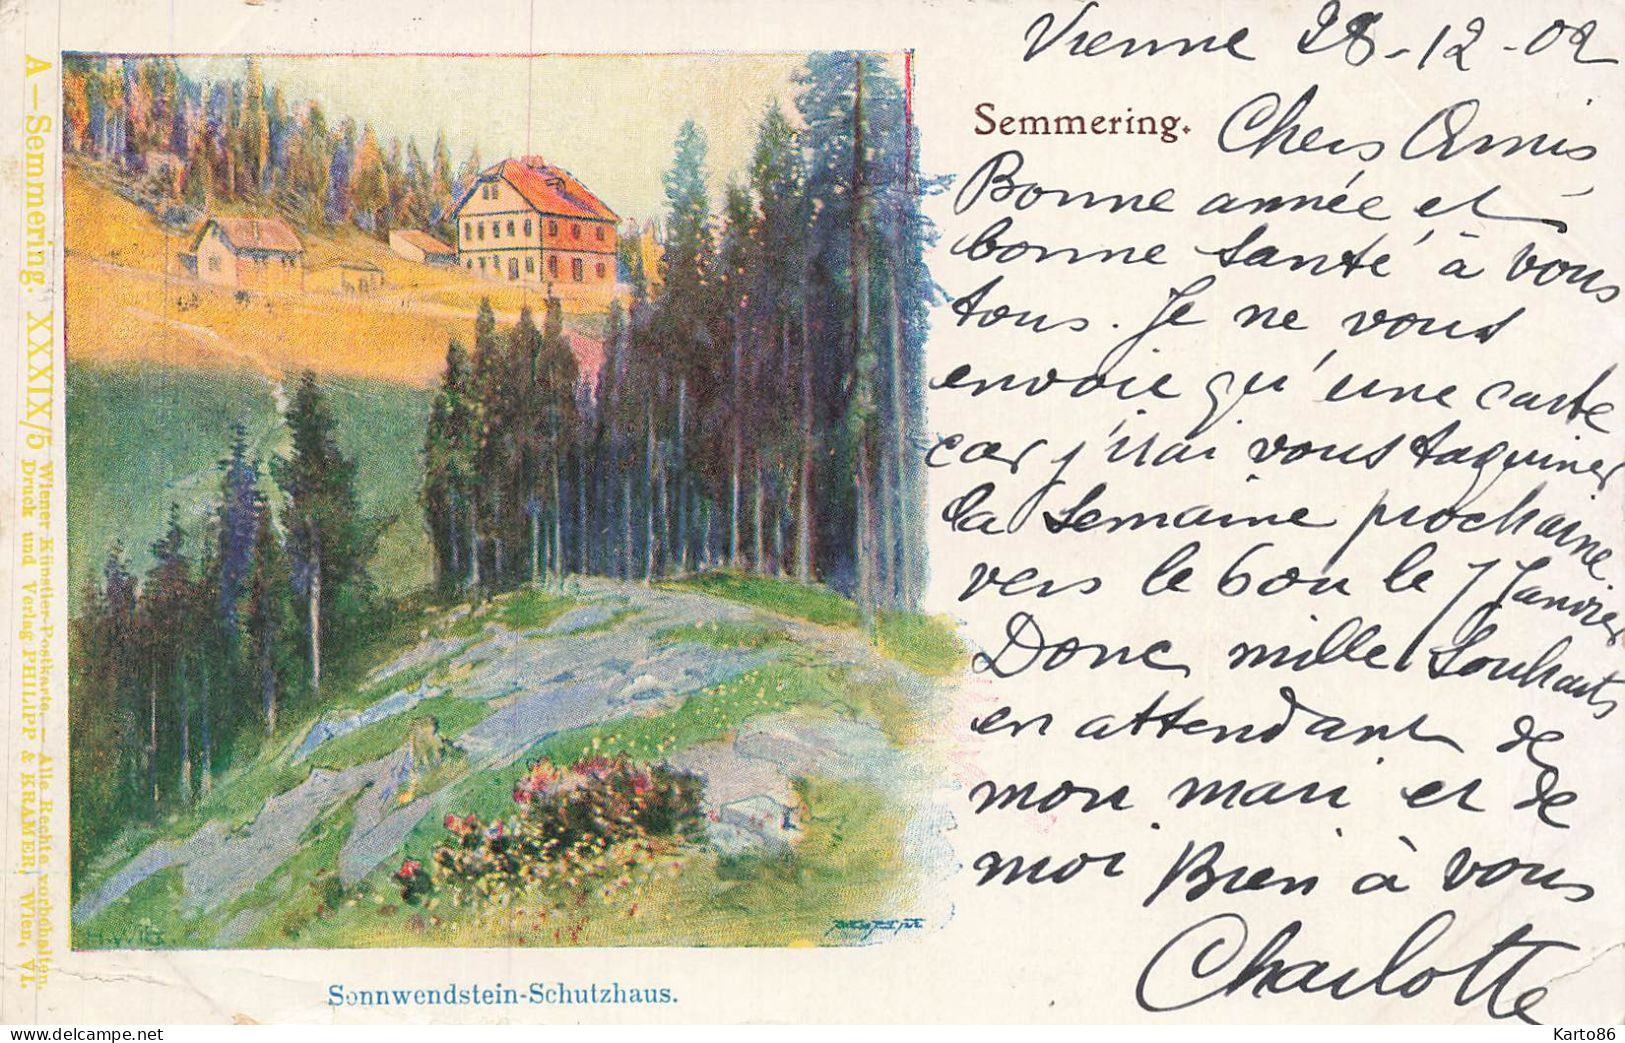 Vienne 28-12-02
Semmering. Chers Amis
Bonne année et
bonne santé à vous
tous. Je ne vous
envoie qu'une carte
car j'irai vous taquiner
la semaine prochaine
vers le 6 ou le 7 Janvier
Donc mille souhaits
en attendant de
mon mari et de
moi Bien à vous
Charlotte
Sonnwendstein-Schutzhaus.
A—Semmering. XXXIX/5 Wiener Künstler-Postkarte. — Alle Rechte vorbehalten.
Druck und Verlag PHILIPP & KRAMER, Wien, VI.
Karto86